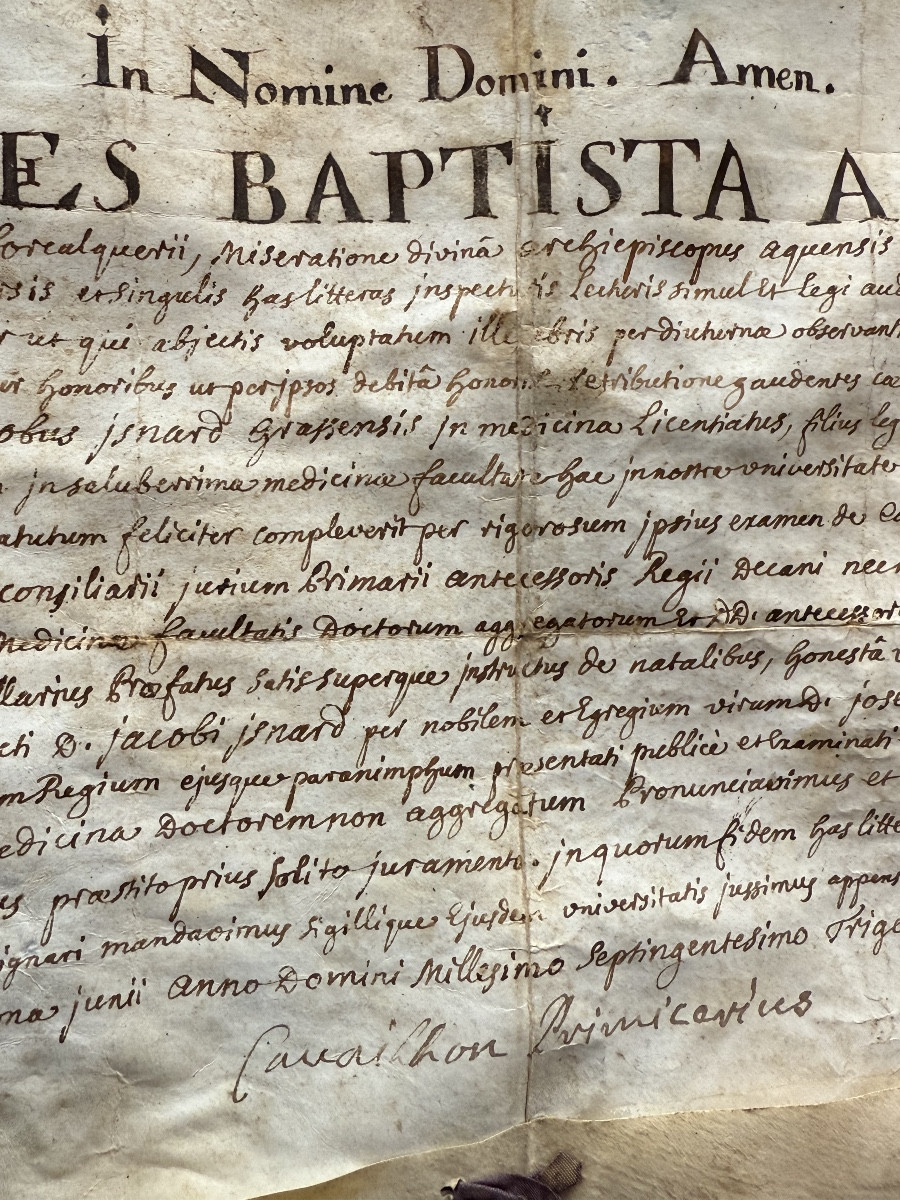 In Nomine Domini. Amen.
ES BAPTISTA A
forcalquerii, Miseratione divinâ Archiepiscopus aquensis
rsis et singulis has litteras jnspecturis Lecturis simul Et Legi aud
r ut qui abjectis voluptatum illecebris per diuturnæ observant
ur honoribus ut per jpsos debitâ honoris retributione gaudentes
obus jsnard Grassensis jn medicina Licentiatus, filius leg
jn saluberrima medicinæ facultate hac jn nostra universitate
atutum feliciter compleverit per rigorosum jpsius examen de
consiliarii jurium Primarii antecessoris Regii Decani nec
Medicinæ facultatis Doctorum aggregatorum Et DD. antecessor
llarius Præfatus satis superque jnstructus de natalibus, honestâ
cti D. jacobi jsnard per nobilem et Egregium virum D. jose
m Regium ejusque paranimphum præsentati publicè et Examinati
edicina Doctorem non aggregatum Pronunciavimus et
us præstito prius solito juramento. jn quorum fidem has litte
ignari mandavimus sigillique Ejusdem universitatis jussimus appens
ma junii anno Domini Millesimo Septingentesimo Trige
Cavaillon Primicerius